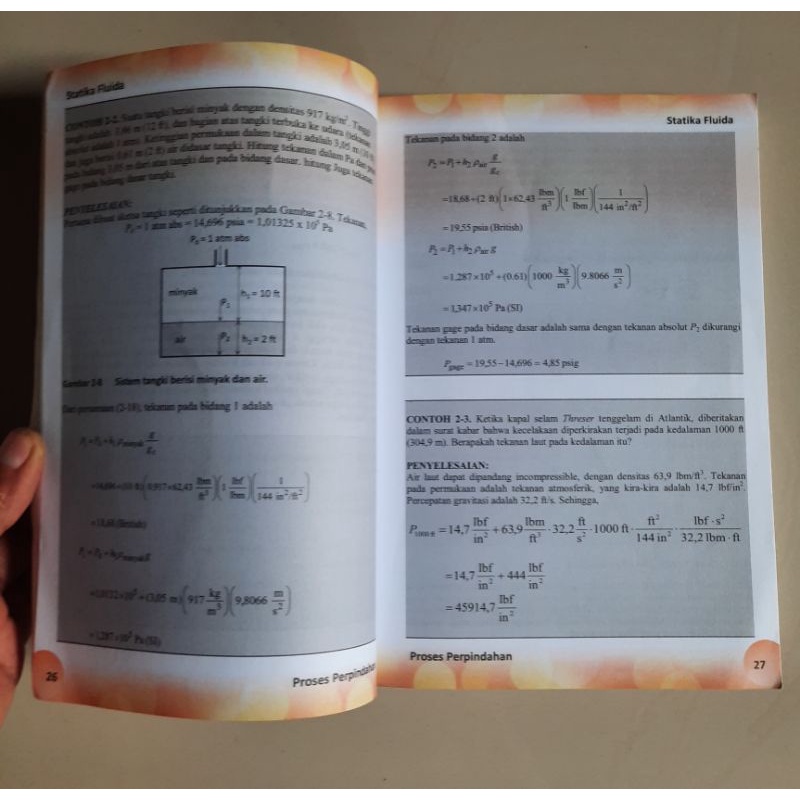 Statika Fluida
CONTOH 2-2. Suatu tangki berisi minyak dengan densitas 917 kg/m³. Tinggi
tangki adalah 3,66 m (12 ft), dan bagian atas tangki terbuka ke udara (tekanan
adalah 1 atm). Ketinggian permukaan dalam tangki adalah 3,05 m (10 ft)
dan juga berisi 0,61 m (2 ft) air didasar tangki. Hitung tekanan dalam Pa dan psia
pada bidang 3,05 m dari atas tangki dan pada bidang dasar. hitung Juga tekanan
gage pada bidang dasar tangki.
PENYELESAIAN:
Pertama dibuat skema tangki seperti ditunjukkan pada Gambar 2-8. Tekanan,
P₀ = 1 atm abs = 14,696 psia = 1,01325 x 10⁵ Pa
P₀ = 1 atm abs
minyak P₁ h₁ = 10 ft
air P₂ h₂ = 2 ft
Gambar 2-8 Sistem tangki berisi minyak dan air.
Dari persamaan (2-18), tekanan pada bidang 1 adalah
P₁ = P₀ + h₁ ρminyak g/gc
=14,696+(10 ft)(0,917×62,43 lbm/ft³)(1 lbf/lbm)(1/144 in²/ft²)
=18,68 (British)
P₁ = P₀ + h₁ρminyak g
=1,0132×10⁵+(3,05 m)(917 kg/m³)(9,8066 m/s²)
=1,287×10⁵ Pa (SI)
26
Proses Perpindahan
Statika Fluida
Tekanan pada bidang 2 adalah
P₂ = P₁ + h₂ ρair g/gc
=18,68+(2 ft)(1×62,43 lbm/ft³)(1 lbf/lbm)(1/144 in²/ft²)
=19,55 psia (British)
P₂ = P₁ + h₂ ρair g
=1.287×10⁵+(0.61)(1000 kg/m³)(9.8066 m/s²)
=1,347×10⁵ Pa (SI)
Tekanan gage pada bidang dasar adalah sama dengan tekanan absolut P₂ dikurangi
dengan tekanan 1 atm.
Pgage = 19,55−14,696 = 4,85 psig
CONTOH 2-3. Ketika kapal selam Threser tenggelam di Atlantik, diberitakan
dalam surat kabar bahwa kecelakaan diperkirakan terjadi pada kedalaman 1000 ft
(304,9 m). Berapakah tekanan laut pada kedalaman itu?
PENYELESAIAN:
Air laut dapat dipandang incompressible, dengan densitas 63,9 lbm/ft³. Tekanan
pada permukaan adalah tekanan atmosferik, yang kira-kira adalah 14,7 lbf/in².
Percepatan gravitasi adalah 32,2 ft/s. Sehingga,
P1000 ft = 14,7 lbf/in² + 63,9 lbm/ft³ · 32,2 ft/s² · 1000 ft · ft²/144 in² · lbf · s²/32,2 lbm · ft
= 14,7 lbf/in² + 444 lbf/in²
= 45914,7 lbf/in²
Proses Perpindahan
27